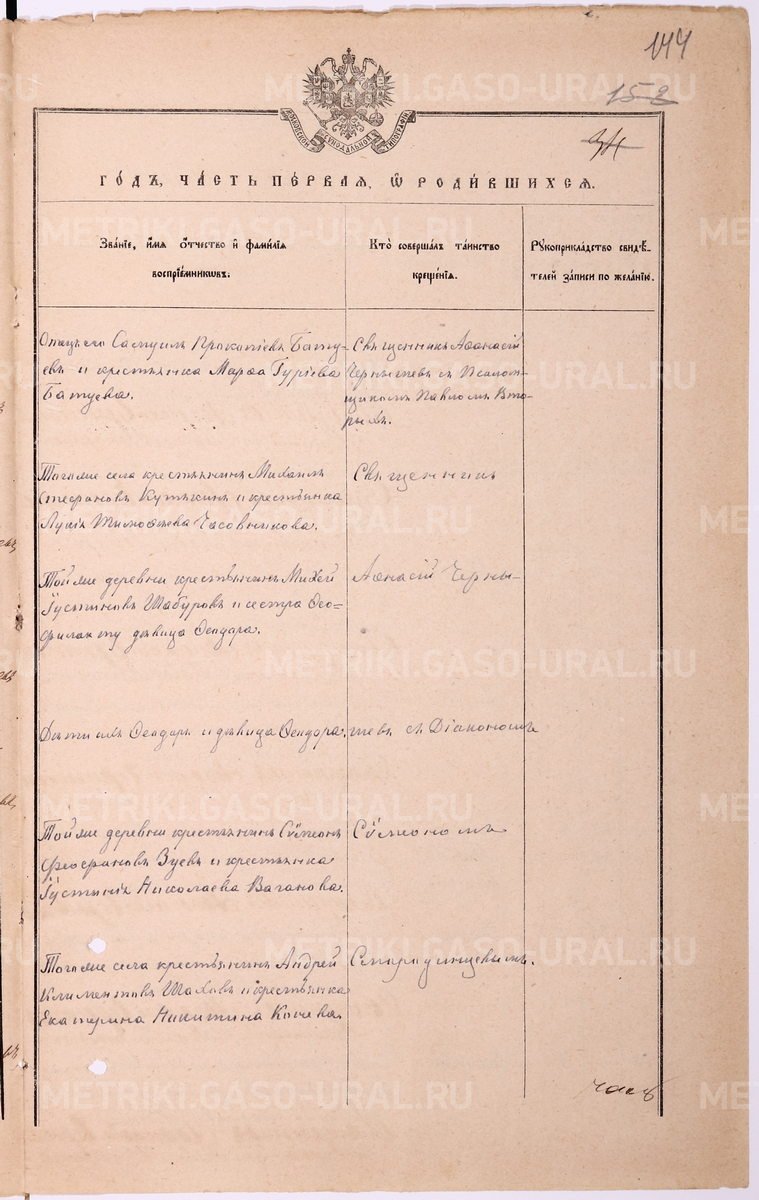 144
152
34
МОСКОВСКОЙ СѴНОДАЛЬНОЙ ТИПОГРАФІИ
ГО́ДЪ, ЧА́СТЬ ПЕ́РВАЯ, Ѡ҆ РОДИ́ВШИХСЯ.
Зва́нїе, и҆́мя ѻ҆́тчество и҆ фами́лїя
воспрїе́мникѡвъ.
Кто̀ соверша́лъ та́инство
креще́нїя.
Рꙋкоприкла́дство свидѣ́-
телей за́писи по жела́нїю.
Отецъ его Самуилъ Прокопіевъ Бату-
евъ и крестьянка Марѳа Гуріева
Батуева.
Священникъ Аѳанасій
Чернышевъ съ Псалом-
щикомъ Павломъ Вто-
рыхъ.
Того же села крестьянинъ Михаилъ
Стефановъ Кутякинъ и крестьянка
Лукія Тимоѳеева Часовникова.
Священникъ
Той же деревни крестьянинъ Михей
Іустиновъ Шабуровъ и сестра Ѳео-
филакту дѣвица Ѳеодора.
Аѳнасій Черны-
Братъ имъ Ѳеодоръ и дѣвица Ѳеодора.
шевъ съ Діакономъ
Той же деревни крестьянинъ Сѵмеонъ
Ѳеофановъ Зуевъ и крестьянка
Іустинія Николаева Ваганова.
Сѵмеономъ
Того же села крестьянинъ Андрей
Климентовъ Шаховъ и крестьянка
Екатерина Никитина Кочева.
Смородинцевымъ.
METRIKI.GASO-URAL.RU